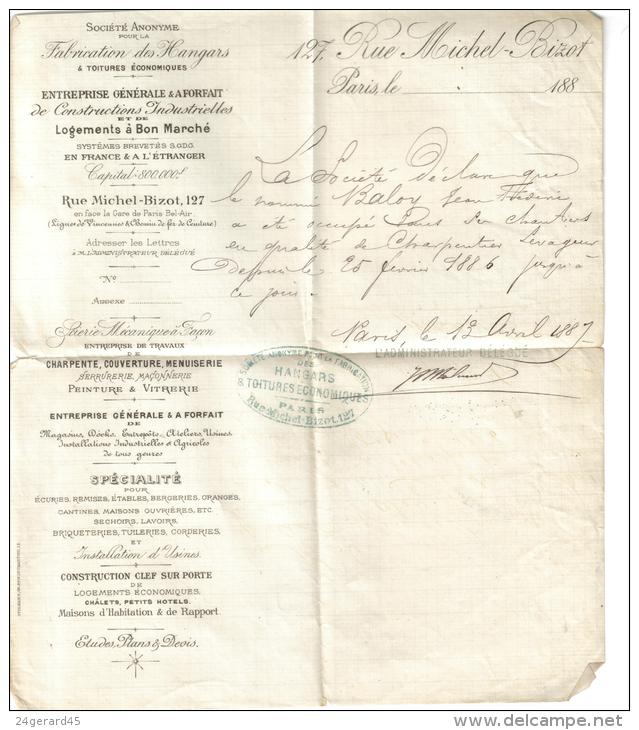 SOCIÉTÉ ANONYME
POUR LA
Fabrication des Hangars
& TOITURES ÉCONOMIQUES
ENTREPRISE GÉNÉRALE & A FORFAIT
de Constructions Industrielles
ET DE
Logements à Bon Marché
SYSTÈMES BREVETÉS S.G.D.G.
EN FRANCE & A L'ÉTRANGER
Capital: 800.000f.
Rue Michel-Bizot, 127
en face la Gare de Paris Bel-Air
(Lignes de Vincennes & Chemin de fer de Ceinture)
Adresser les Lettres
à M. L'ADMINISTRATEUR DÉLÉGUÉ
No
Annexe
Scierie Mécanique à Façon
ENTREPRISE DE TRAVAUX
DE
CHARPENTE, COUVERTURE, MENUISERIE
SERRURERIE, MAÇONNERIE
PEINTURE & VITRERIE
ENTREPRISE GÉNÉRALE & A FORFAIT
DE
Magasins, Docks, Entrepôts, Ateliers, Usines
Installations Industrielles et Agricoles
de tous genres
SPÉCIALITÉ
POUR
ÉCURIES, REMISES, ÉTABLES, BERGERIES, GRANGES,
CANTINES, MAISONS OUVRIÈRES, ETC.
SECHOIRS, LAVOIRS,
BRIQUETERIES, TUILERIES, CORDERIES,
ET
Installation d'Usines.
CONSTRUCTION CLEF SUR PORTE
DE
LOGEMENTS ÉCONOMIQUES,
CHÂLETS, PETITS HOTELS.
Maisons d'Habitation & de Rapport.
Etudes, Plans & Devis.
127, Rue Michel-Bizot
Paris, le 188
La Société déclare que
le nommé Baloy Jean
a été occupé dans ses chantiers
en qualité de Charpentier Levageur
depuis le 25 février 1886 jusqu'à
ce jour.
Paris, le 13 Avril 1887
L'ADMINISTRATEUR DÉLÉGUÉ
SOCIÉTÉ ANONYME POUR LA FABRICATION
DES
HANGARS
& TOITURES ECONOMIQUES
PARIS
Rue Michel-Bizot, 127
24gerard45
delcampe.net